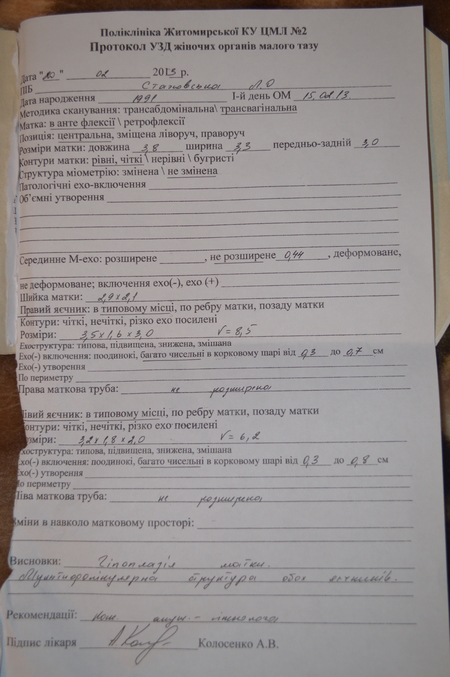 Поліклініка Житомирської КУ ЦМЛ №2
Протокол УЗД жіночих органів малого тазу
Дата "20" 02 2013 р.
ПІБ Становська Л.О
Дата народження 1991 І-й день ОМ 15.02.13
Методика сканування: трансабдомінальна\ трансвагінальна
Матка: в анте флексії \ ретрофлексії
Позиція: центральна, зміщена ліворуч, праворуч
Розміри матки: довжина 3,8 ширина 3,3 передньо-задній 3,0
Контури матки: рівні, чіткі \ нерівні \ бугристі
Структура міометрію: змінена \ не змінена
Патологічні ехо-включення
Об'ємні утворення
Серединне М-ехо: розширене , не розширене 0,44, деформоване,
не деформоване; включення ехо(-), ехо (+)
Шийка матки: 2,9х2,1
Правий яєчник: в типовому місці, по ребру матки, позаду матки
Контури: чіткі, нечіткі, різко ехо посилені
Розміри: 3,5х1,6х3,0 V=8,5
Ехоструктура: типова, підвищена, знижена, змішана
Ехо(-) включення: поодинокі, багато чисельні в корковому шарі від 0,3 до 0,7 см
Ехо(-) утворення
По периметру
Права маткова труба: не розширена
Лівий яєчник: в типовому місці, по ребру матки, позаду матки
Контури: чіткі, нечіткі, різко ехо посилені
Розміри: 3,2х1,8х2,0 V=6,2
Ехоструктура: типова, підвищена, знижена, змішана
Ехо(-) включення: поодинокі, багато чисельні в корковому шарі від 0,3 до 0,8 см
Ехо(-) утворення
По периметру
Ліва маткова труба: не розширена
Зміни в навколо матковому просторі:
Висновки: Гіпоплазія матки.
Мультифолікулярна структура обох яєчників.
Рекомендації: конс.
Підпис лікаря Колосенко А.В.